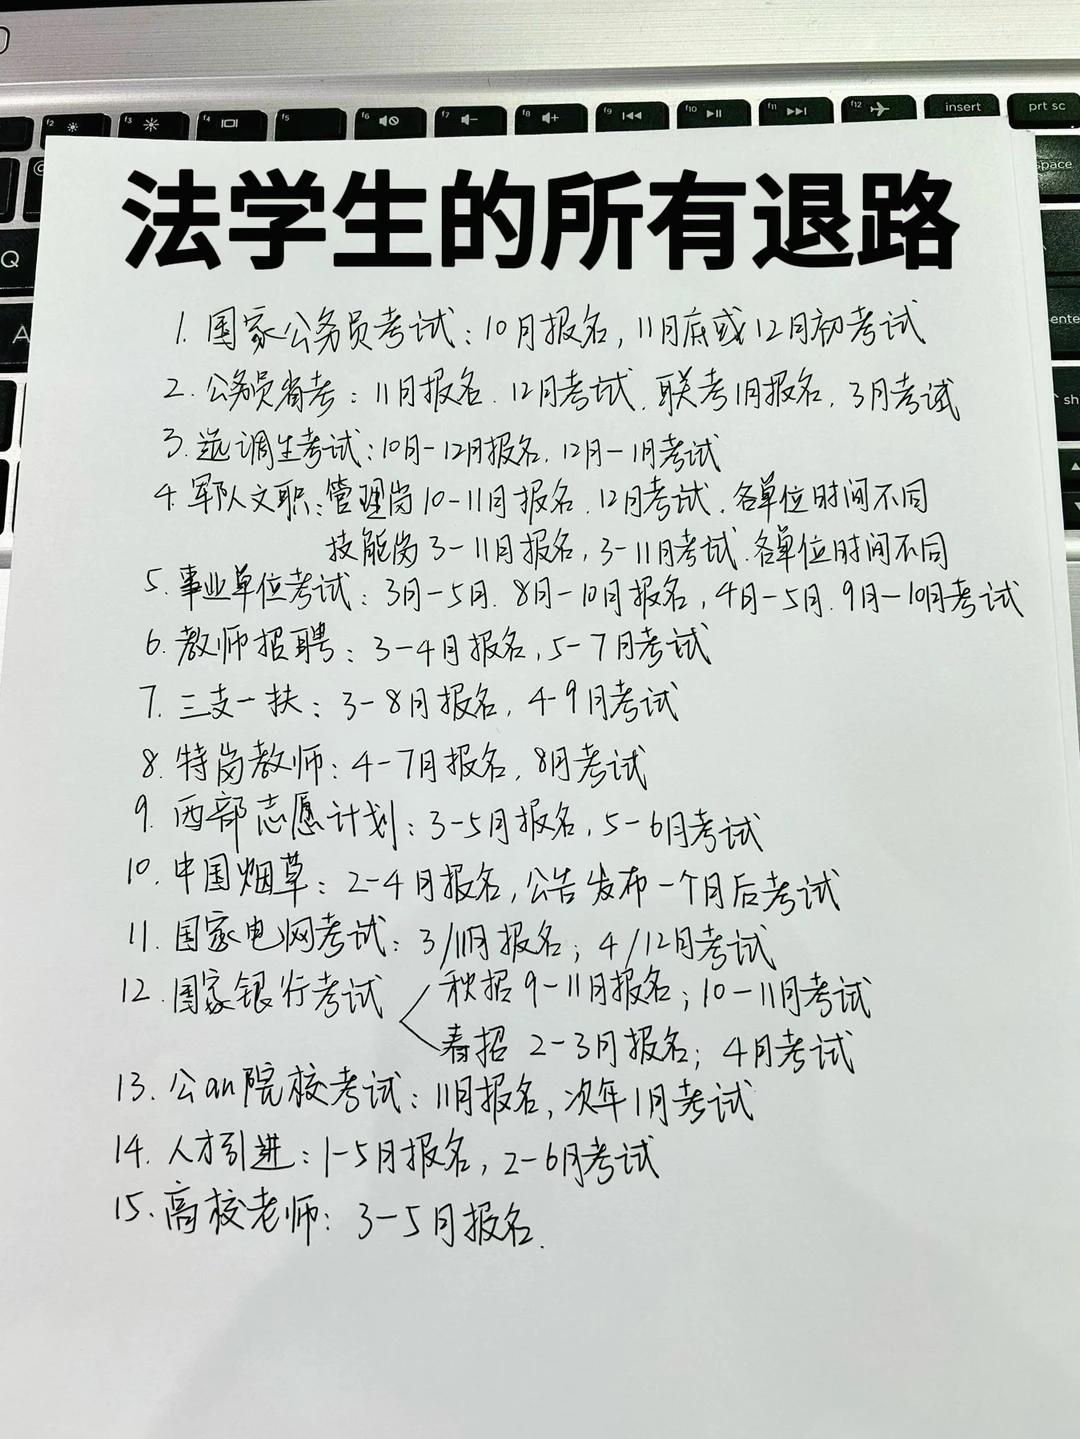 f2
f3
f4
f5
f6
f7
f8
f9
f10
f11
f12
insert
prt sc
space
Q
A
enter
sh
法学生的所有退路
1. 国家公务员考试：10月报名，11月底或12月初考试
2. 公务员省考：11月报名、12月考试、联考1月报名、3月考试
3. 选调生考试：10月-12月报名、12月-1月考试
4. 军队文职：管理岗10-11月报名、12月考试、各单位时间不同
技能岗3-11月报名，3-11月考试、各单位时间不同
5. 事业单位考试：3月-5月、8月-10月报名，4月-5月、9月-10月考试
6. 教师招聘：3-4月报名，5-7月考试
7. 三支一扶：3-8月报名，4-9月考试
8. 特岗教师：4-7月报名，8月考试
9. 西部志愿计划：3-5月报名，5-6月考试
10. 中国烟草：2-4月报名，公告发布一个月后考试
11. 国家电网考试：3/11月报名；4/12月考试
12. 国家银行考试 秋招9-11月报名；10-11月考试
春招 2-3月报名；4月考试
13. 公an院校考试：11月报名，次年1月考试
14. 人才引进：1-5月报名，2-6月考试
15. 高校老师：3-5月报名.